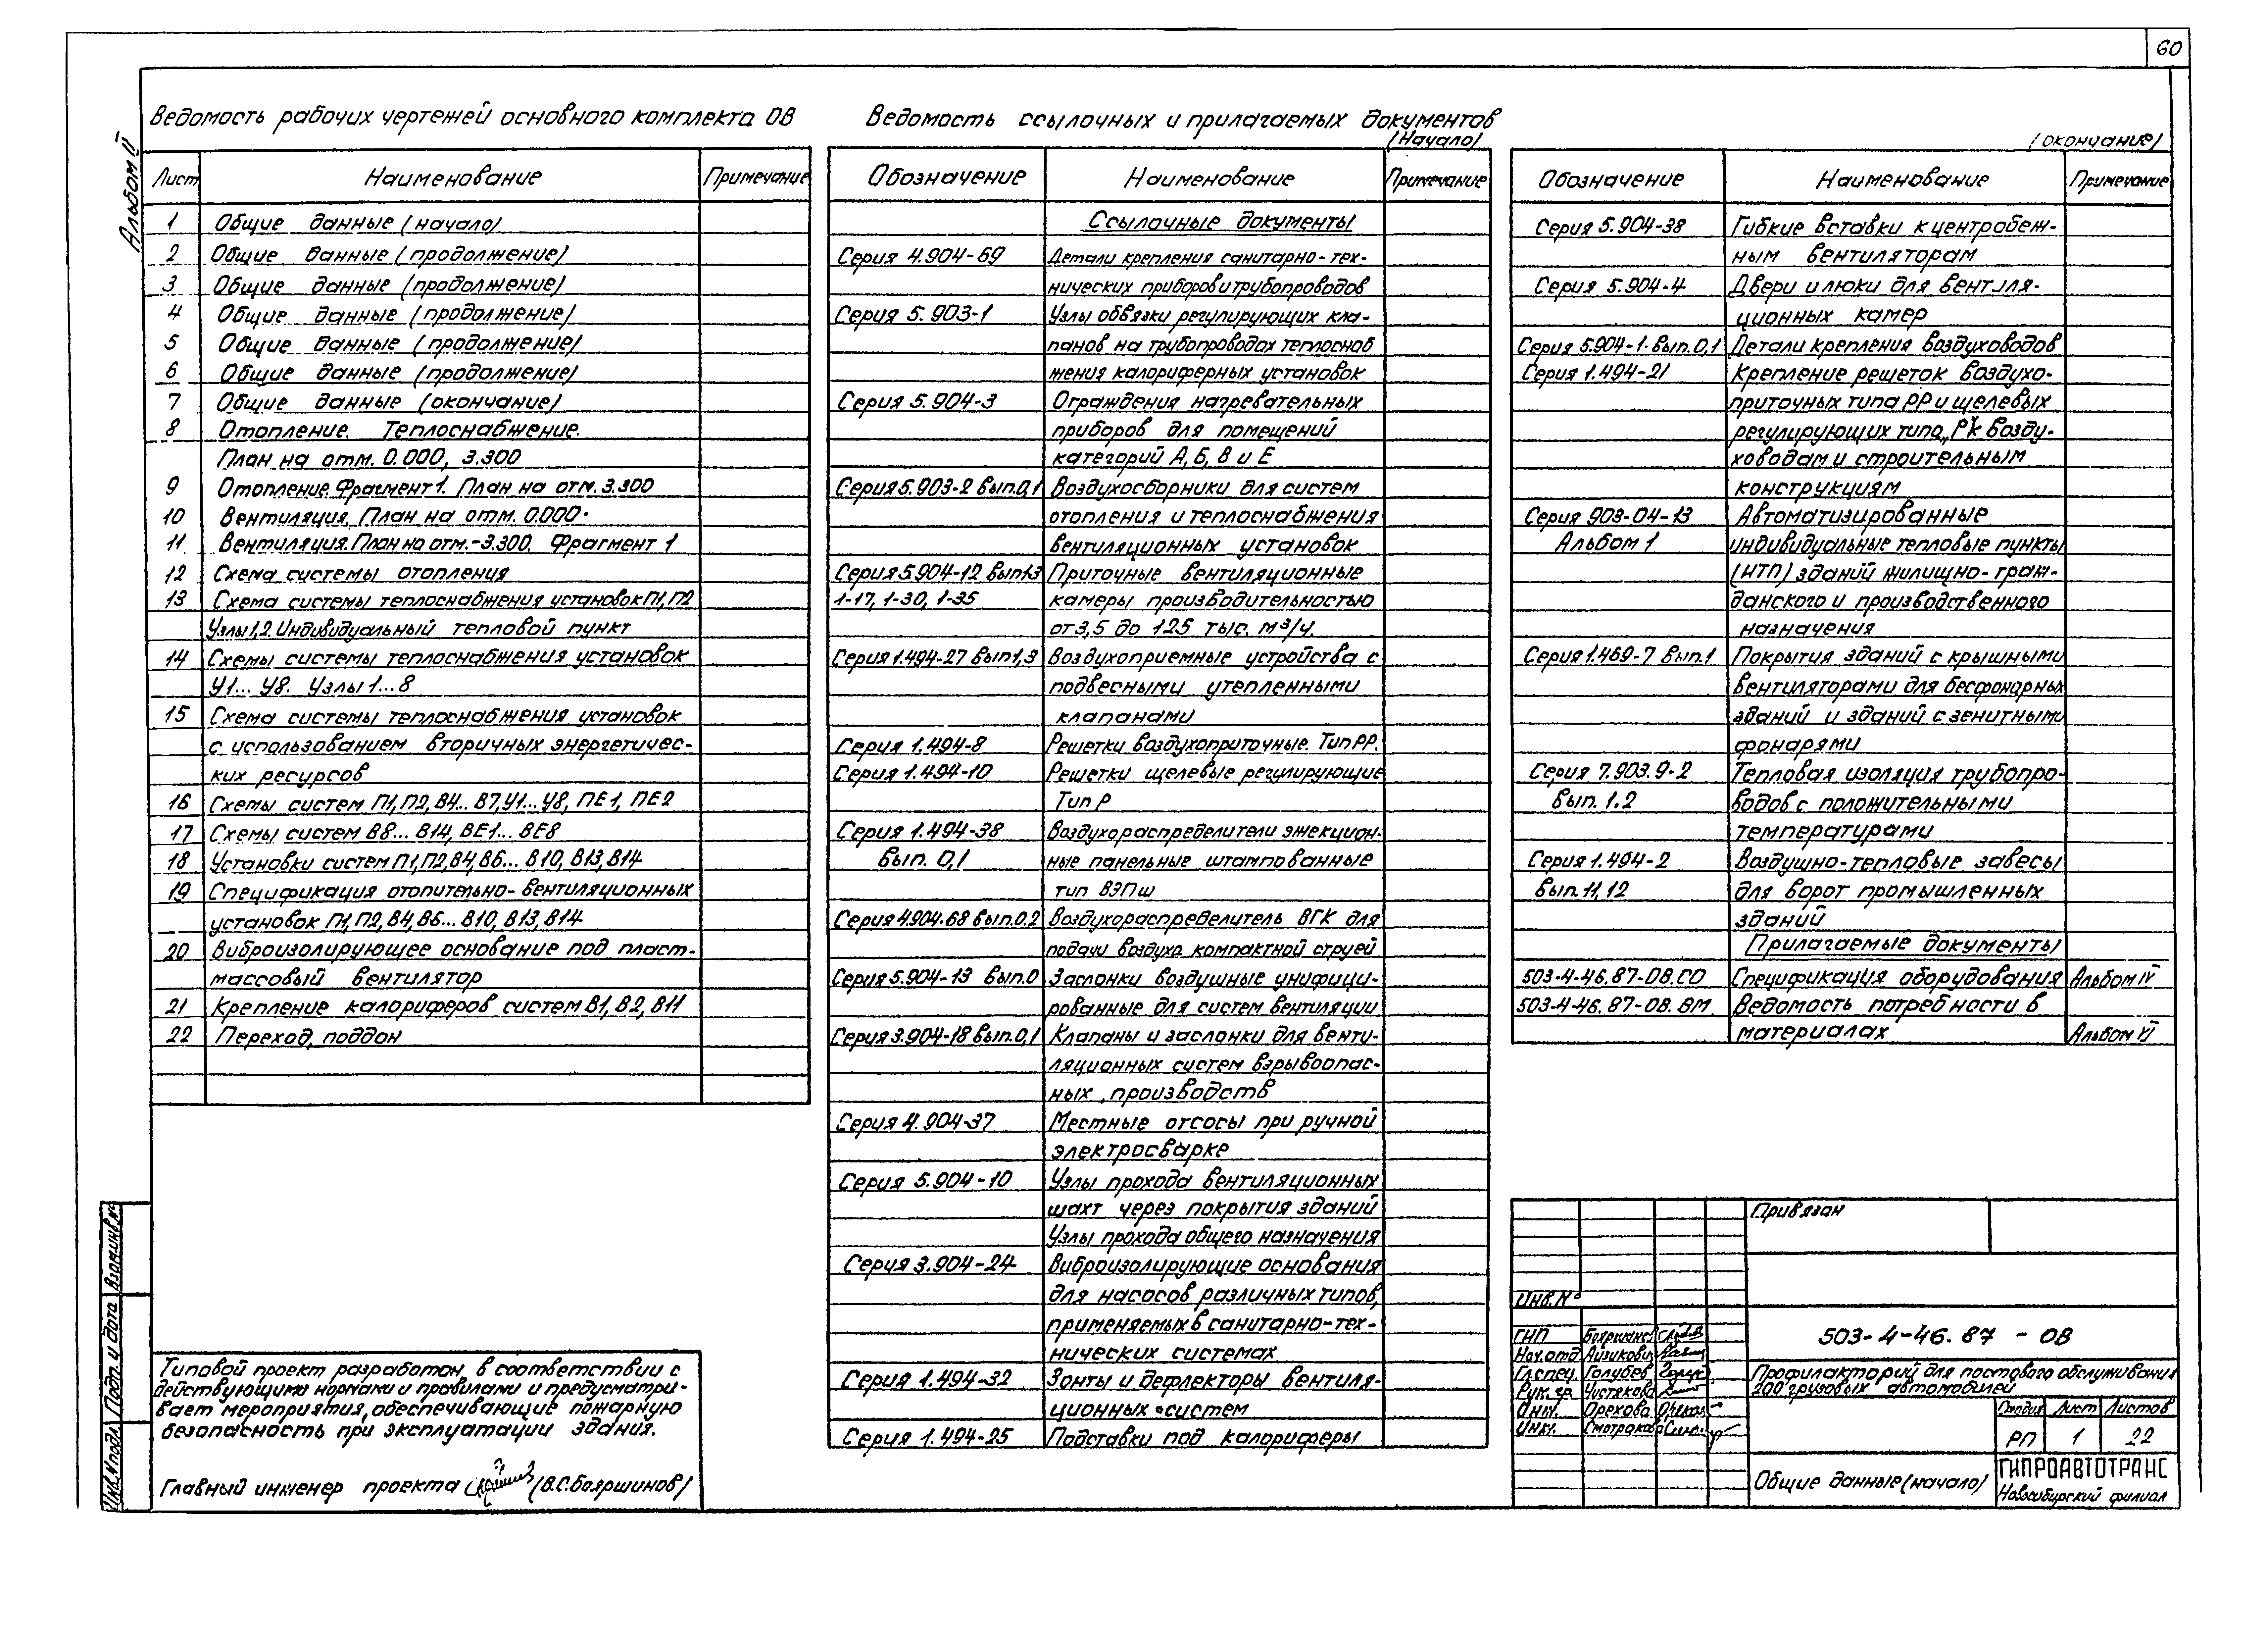 60
Альбом II
Ведомость рабочих чертежей основного комплекта ОВ
Лист Наименование Примечание
1 Общие данные (начало)
2 Общие данные (продолжение)
3 Общие данные (продолжение)
4 Общие данные (продолжение)
5 Общие данные (продолжение)
6 Общие данные (продолжение)
7 Общие данные (окончание)
8 Отопление. Теплоснабжение.
План на отм. 0.000, 3.300
9 Отопление. Фрагмент 1. План на отм. 3.300
10 Вентиляция. План на отм. 0.000.
11 Вентиляция. План на отм.-3.300. Фрагмент 1
12 Схема системы отопления
13 Схема системы теплоснабжения установок П1, П2
Узлы 1,2. Индивидуальный тепловой пункт
14 Схемы системы теплоснабжения установок
У1... У8. Узлы 1...8
15 Схема системы теплоснабжения установок
с использованием вторичных энергетичес-
ких ресурсов
16 Схемы систем П1, П2, В4... В7, У1... У8, ПЕ1, ПЕ2
17 Схемы систем В8... В14, ВЕ1... ВЕ8
18 Установки систем П1, П2, В4, В6... В10, В13, В14
19 Спецификация отопительно-вентиляционных
установок П1, П2, В4, В6... В10, В13, В14
20 Виброизолирующее основание под пласт-
массовый вентилятор
21 Крепление калориферов систем В1, В2, В11
22 Переход, поддон
Ведомость ссылочных и прилагаемых документов
(Начало)
Обозначение Наименование Примечание
Ссылочные документы
Серия 4.904-69 Детали крепления санитарно-тех-
нических приборов и трубопроводов
Серия 5.903-1 Узлы обвязки регулирующих кла-
панов на трубопроводах теплоснаб
жения калориферных установок
Серия 5.904-3 Ограждения нагревательных
приборов для помещений
категорий А, Б, В и Е
Серия 5.903-2 вып.0,1 Воздухосборники для систем
отопления и теплоснабжения
вентиляционных установок
Серия 5.904-12 вып1.3 Приточные вентиляционные
1-17, 1-30, 1-35 камеры производительностью
от 3,5 до 125 тыс. м³/ч.
Серия 1.494-27 вып1,3 Воздухоприемные устройства с
подвесными утепленными
клапанами
Серия 1.494-8 Решетки воздухоприточные. Тип РР.
Серия 1.494-10 Решетки щелевые регулирующие
Тип Р
Серия 1.494-38 Воздухораспределители эжекцион-
вып. 0,1 ные панельные штампованные
тип ВЭПш
Серия 4.904-68 вып.0,2 Воздухораспределитель ВГК для
подачи воздуха компактной струей
Серия 5.904-13 вып.0 Заслонки воздушные унифици-
рованные для систем вентиляции
Серия 3.904-18 вып.0,1 Клапаны и заслонки для венти-
ляционных систем взрывоопас-
ных производств
Серия 4.904-37 Местные отсосы при ручной
электросварке
Серия 5.904-10 Узлы прохода вентиляционных
шахт через покрытия зданий
Узлы прохода общего назначения
Серия 3.904-24 Виброизолирующие основания
для насосов различных типов,
применяемых в санитарно-тех-
нических системах
Серия 1.494-32 Зонты и дефлекторы вентиля-
ционных систем
Серия 1.494-25 Подставки под калориферы
(окончание)
Обозначение Наименование Примечание
Серия 5.904-38 Гибкие вставки к центробеж-
ным вентиляторам
Серия 5.904-4 Двери и люки для вентиля-
ционных камер
Серия 5.904-1. вып.0,1 Детали крепления воздуховодов
Серия 1.494-21 Крепление решеток воздухо-
приточных типа РР и щелевых
регулирующих типа „Р“ к возду-
ховодам и строительным
конструкциям
Серия 903-04-13 Автоматизированные
Альбом 1 индивидуальные тепловые пункты
(ИТП) зданий жилищно-граж-
данского и производственного
назначения
Серия 1.469-7 вып.1 Покрытия зданий с крышными
вентиляторами для бесфонарных
зданий и зданий с зенитными
фонарями
Серия 7.903.9-2 Тепловая изоляция трубопро-
вып. 1.2 водов с положительными
температурами
Серия 1.494-2 Воздушно-тепловые завесы
вып. 11, 12 для ворот промышленных
зданий
Прилагаемые документы
503-4-46.87-ОВ.СО Спецификация оборудования Альбом IV
503-4-46.87-ОВ.ВМ. Ведомость потребности в
материалах Альбом VI
Типовой проект разработан в соответствии с
действующими нормами и правилами и предусматри-
вает мероприятия, обеспечивающие пожарную
безопасность при эксплуатации здания.
Главный инженер проекта (В.С.Бояршинов)
Взам.инв.№
Подп. и дата
Инв.№подл.
Привязан
Инв.№
503-4-46.87 - ОВ
ГИП Бояршинов
Нач.отд Айзикович
Гл.спец. Голубев
Рук.гр. Устякова
Инж. Орехова
Инж.
Профилакторий для постового обслуживания
200 грузовых автомобилей
Стадия Лист Листов
РП 1 22
Общие данные (начало)
ГИПРОАВТОТРАНС
Новосибирский филиал